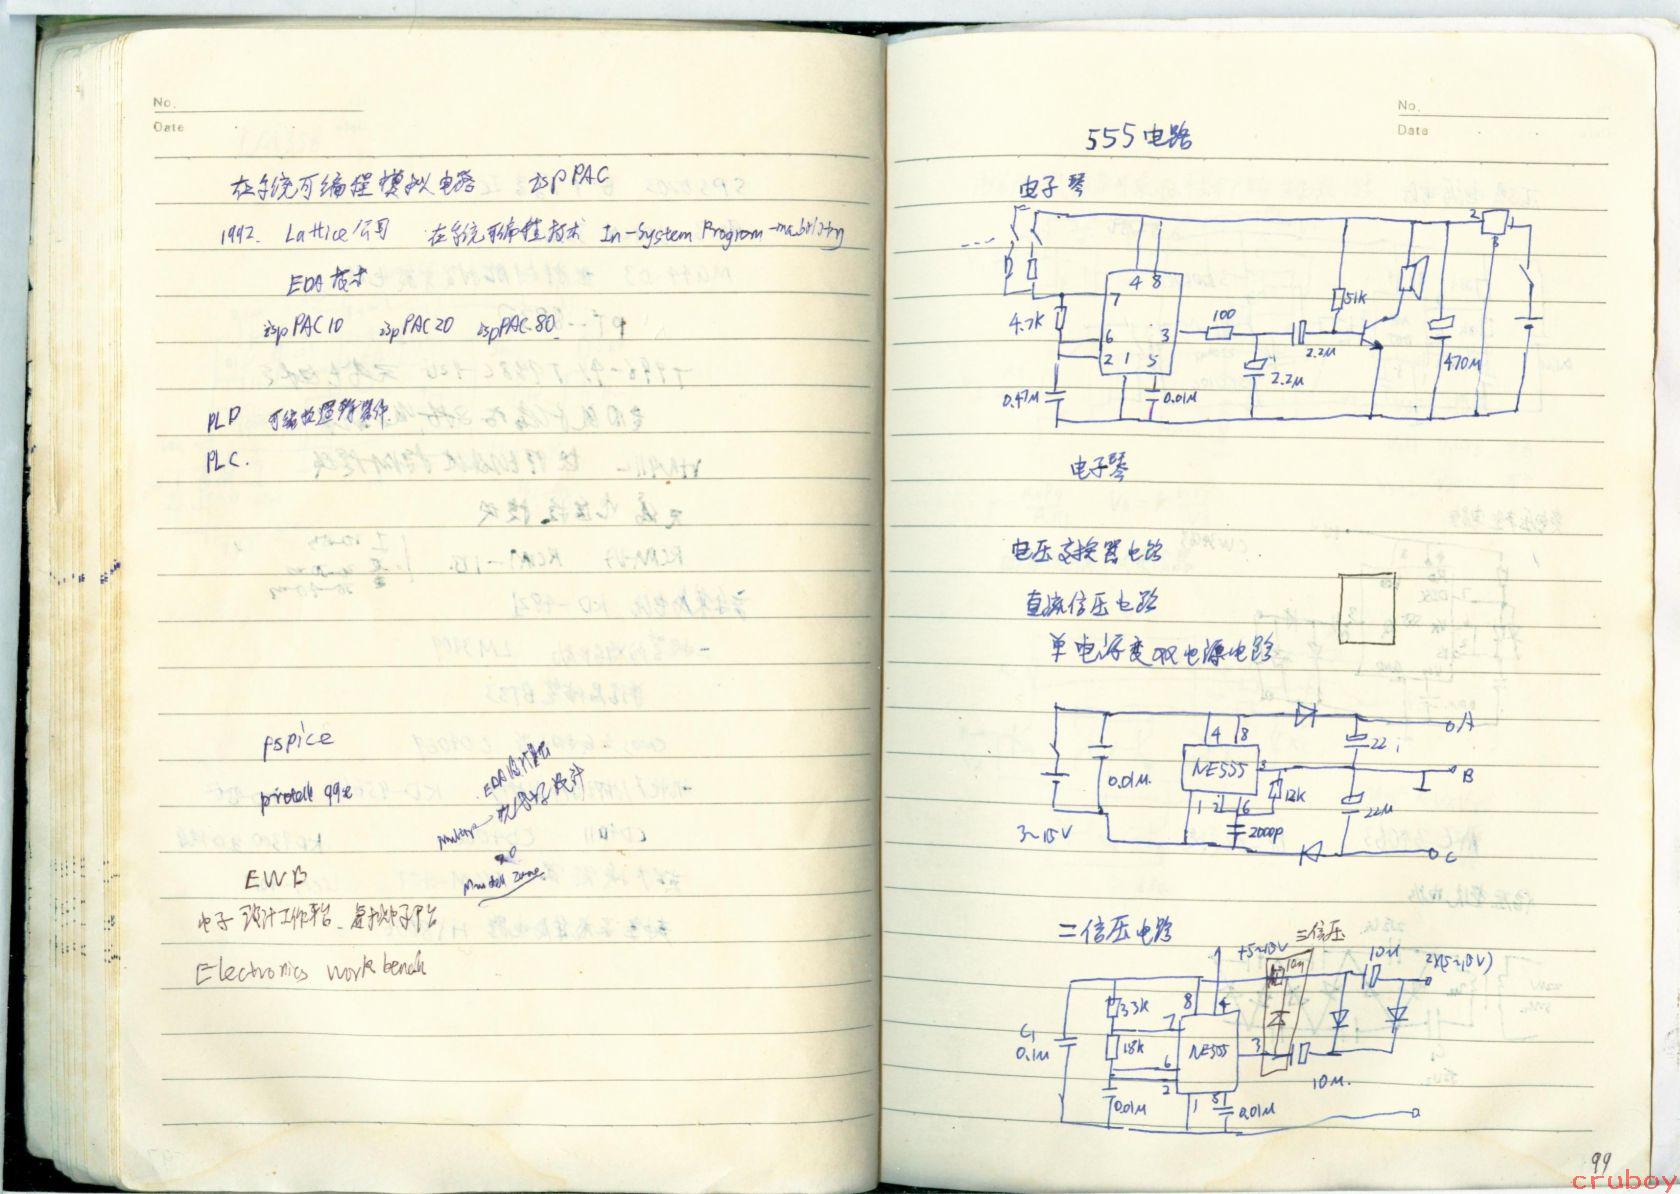 No.
Date
在系统可编程模拟电路 ispPAC
1992. Lattice公司 在系统可编程技术 In-System Program-mability
EDA技术
ispPAC10 ispPAC20 ispPAC80
PLD 可编程逻辑器件
PLC.
pspice
protell 99se
EWB
电子设计工作平台. 虚拟电子平台
Electronics workbench
No.
Date
555电路
电子琴
2 1
3
4 8
7
4.7K
6
2 1 5
3
100
51K
2.2M
2.2M
470M
0.47M
0.01M
电子琴
电压变换器电路
直流倍压电路
单电源变双电源电路
A
4 8
22
NE555
3
B
0.01M.
12K
1 2 6
22M
3~15V
2000P
C
二倍压电路
三倍压
+5~15V
10M
10M
2X(5~10V)
33K
8 4
7
C1
0.1M
18K
NE555
3
6
2
10M.
0.01M
1 5
0.01M
99
cruboy